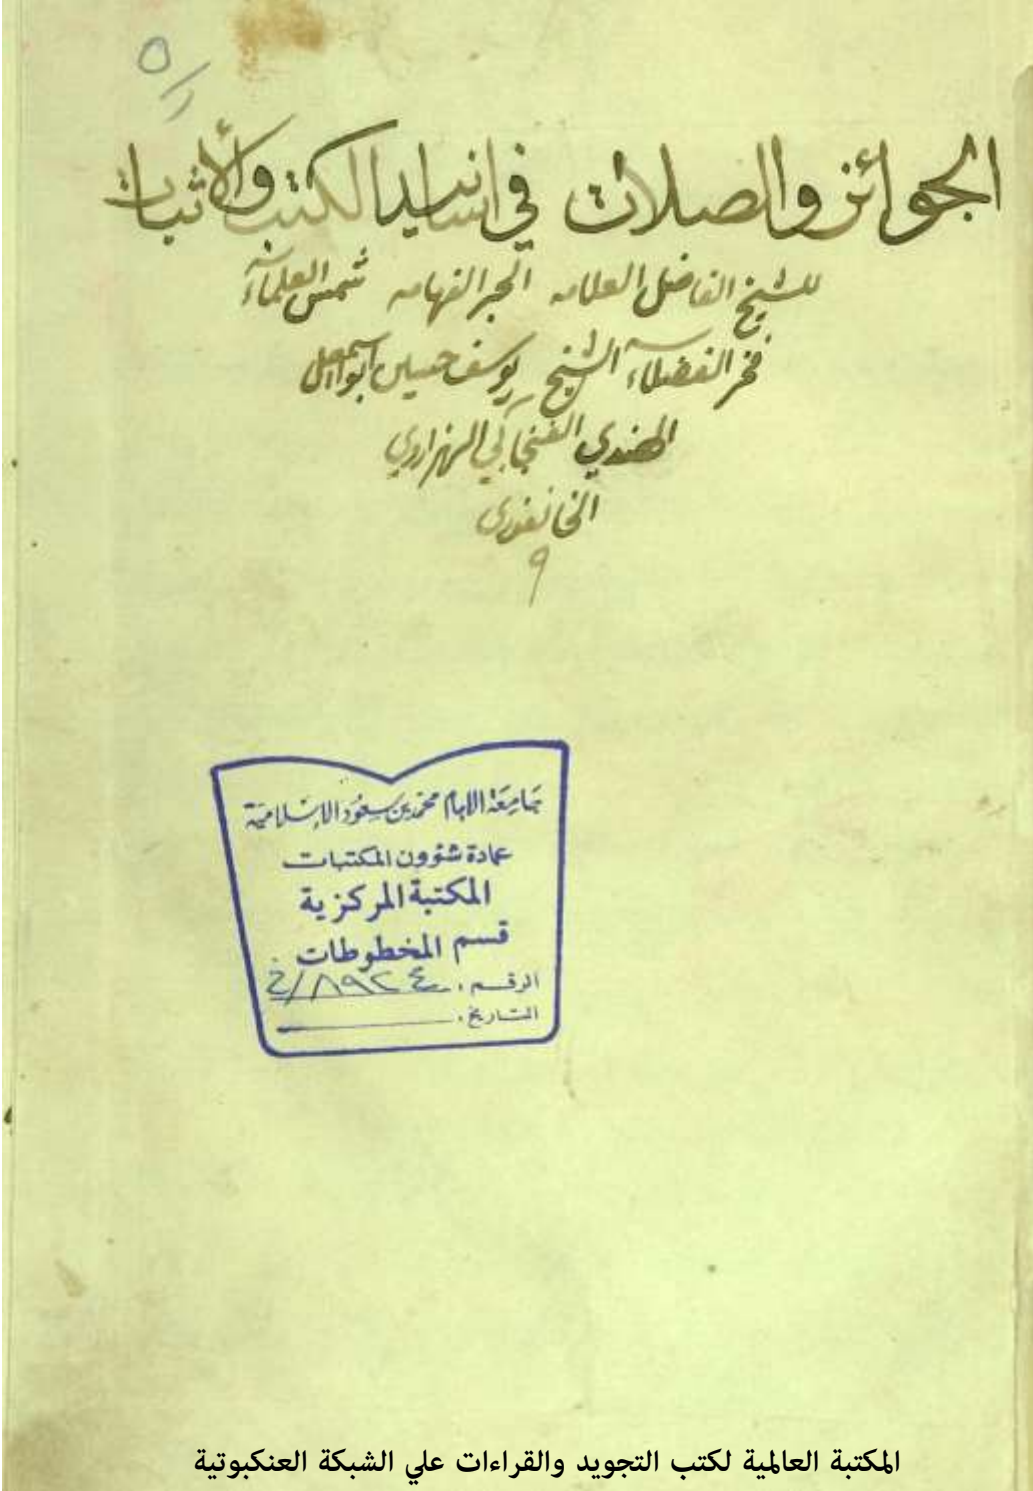 ٥/١
الجوائز والصلات في اسانيد الكتب والأثبات
للشيخ الفاضل العلامه الحبر الفهامه شمس العلماء
فخر الفضلاء الشيخ يوسف حسين ابو اسمعيل
الهندي الفنجابي الهزاروي
الخانفوري
٩
جامعة الإمام محمد بن سعود الإسلامية
عمادة شئوون المكتبات
المكتبة المركزية
قسم المخطوطات
الرقم : ٨٩٢٤/خ
التاريخ :
المكتبة العالمية لكتب التجويد والقراءات علي الشبكة العنكبوتية